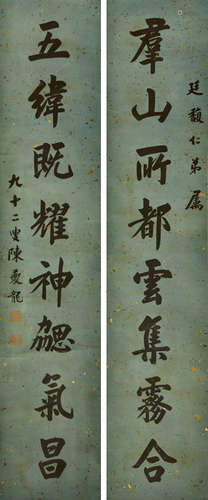 廷馥仁弟屬
羣山所都雲集霧合
五緯既耀神勰氣昌
九十二叟陳夔龍